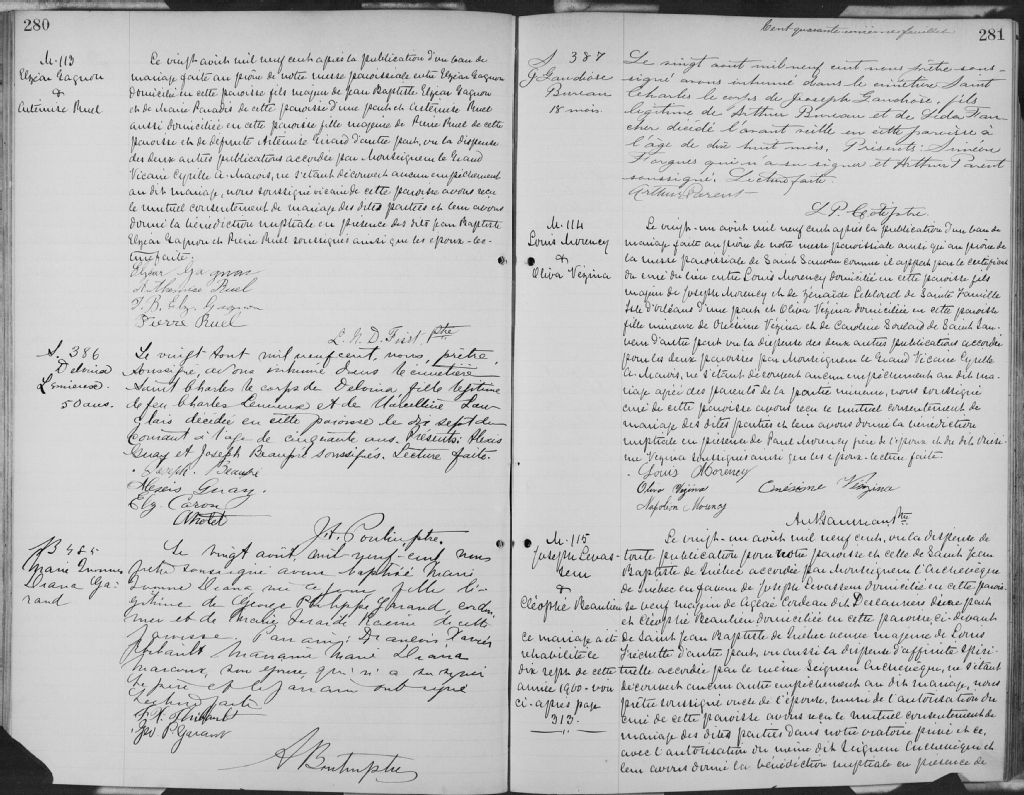 280
M. 113
Elzéar Gagnon
&
Artémise Ruel
Le vingt août mil neuf cent après la publication d'un ban de
mariage faite au prône de notre messe paroissiale entre Elzéar Gagnon
domicilié en cette paroisse fils majeur de Jean Baptiste Elzéar Gagnon
et de Marie Paradis de cette paroisse d'une part et Artémise Ruel
aussi domiciliée en cette paroisse fille majeure de Pierre Ruel de cette
paroisse et de défunte Artémise Girard d'autre part, vu la dispense
des deux autres publications accordée par Monseigneur le Grand
Vicaire Cyrille A. Marois, ne s'étant découvert aucun empêchement
au dit mariage, nous soussigné vicaire de cette paroisse avons reçu
le mutuel consentement de mariage des dites parties et leur avons
donné la bénédiction nuptiale en présence des dits Jean Baptiste
Elzéar Gagnon et Pierre Ruel soussignés ainsi que les époux. Lec-
ture faite.
Elzéar Gagnon
Ruel
J. B. Elz. Gagnon
Pierre Ruel
Ptre
S. 386
Delvina
Lemieux
50 ans.
Le vingt août mil neuf cent, nous, prêtre
soussigné, avons inhumé dans le cimetière
Saint Charles le corps de Delvina, fille légitime
de feu Charles Lemieux et de Marcelline Lan-
glais décédée en cette paroisse le dix sept du
courant à l'age de cinquante ans. Présents: Alexis
Guay et Joseph Beaupré soussignés. Lecture faite.
Joseph Beaupré
Alexis Guay
Elz. Caron
J. A. Ptre.
B 485
Marie
Diana Ga-
rand
Le vingt août mil neuf-cent nous
prêtre soussigné avons baptisé Marie
Diana née fille lé-
gitime de George Philippe Garand, cordon-
nier et de de cette
paroisse. Parrain: François Xavier
Thibault Marraine Marie Diana
Marcoux, son épouse, qui n'a su signer
Le père et le parrain ont signé
Lecture faite
F. X. Thibault
Geo P. Garand
Ptre
Cent quarante unième feuillet
281
S 387
J Gaudiose
Bureau
18 mois
Le vingt août mil neuf cent nous prêtre sous-
signé avons inhumé dans le cimetière Saint
Charles le corps de Joseph Gaudiose, fils
légitime de Arthur Bureau et de Léda Fau-
cher décédé l'avant veille en cette paroisse à
l'age de dix huit mois. Présents: Siméon
Fargues qui n'a su signer et Arthur Parent
soussigné. Lecture faite.
Arthur Parent
M. 114
Louis Morency
&
Oliva Vézina
Le vingt-un août mil neuf cent après la publication d'un ban de
mariage faite au prône de notre messe paroissiale ainsi qu'au prône de
la messe paroissiale de Saint Sauveur comme il appert par le certificat
du curé du lieu entre Louis Morency domicilié en cette paroisse fils
majeur de Joseph Morency et de Zénaïde Leblond de Sainte Famille
Isle d'Orléans d'une part et Oliva Vézina domiciliée en cette paroisse
fille mineure de Onésime Vézina et de Caroline de Saint Sau-
veur d'autre part vu la dispense des deux autres publications accordée
pour les deux paroisses par Monseigneur le Grand Vicaire Cyrille
A. Marois, ne s'étant découvert aucun empêchement au dit ma-
riage agréé des parents de la partie mineure, nous, soussigné
curé de cette paroisse avons reçu le mutuel consentement de
mariage des dites parties et leur avons donné la bénédiction
nuptiale en présence de Paul Morency père de l'époux et du dit Onési-
me Vézina soussignés ainsi que les époux. Lecture faite.
Louis Morency
Oliva Vézina
Onésime Vézina
Napoléon Morency
Ptre
M. 115
Joseph Levas-
seur
&
Cléophée Beaulieu
ce mariage a été
réhabilité le
dix sept. de cette
année 1900 - voir
ci-après page
313.
Le vingt-un août mil neuf cent, vu la dispense de
toute publication pour notre paroisse et celle de Saint Jean
Baptiste de Québec accordée par Monseigneur l'Archevêque
de Québec en faveur de Joseph Levasseur domicilié en cette parois-
se veuf majeur de Aglaé Cordeau dit Deslauriers d'une part
et Cléophée Beaulieu domiciliée en cette paroisse, ci-devant
de Saint Jean Baptiste de Québec veuve majeure de Louis
Fréchette d'autre part, vu aussi la dispense d'affinité spiri-
tuelle accordée par le même Seigneur Archevêque, ne s'étant
découvert aucun autre empêchement au dit mariage, nous
prêtre soussigné oncle de l'épouse, muni de l'autorisation du
curé de cette paroisse avons reçu le mutuel consentement de
mariage des dites parties dans notre oratoire privé et ce,
avec l'autorisation du même dit Seigneur Archevêque et
leur avons donné la bénédiction nuptiale en présence de